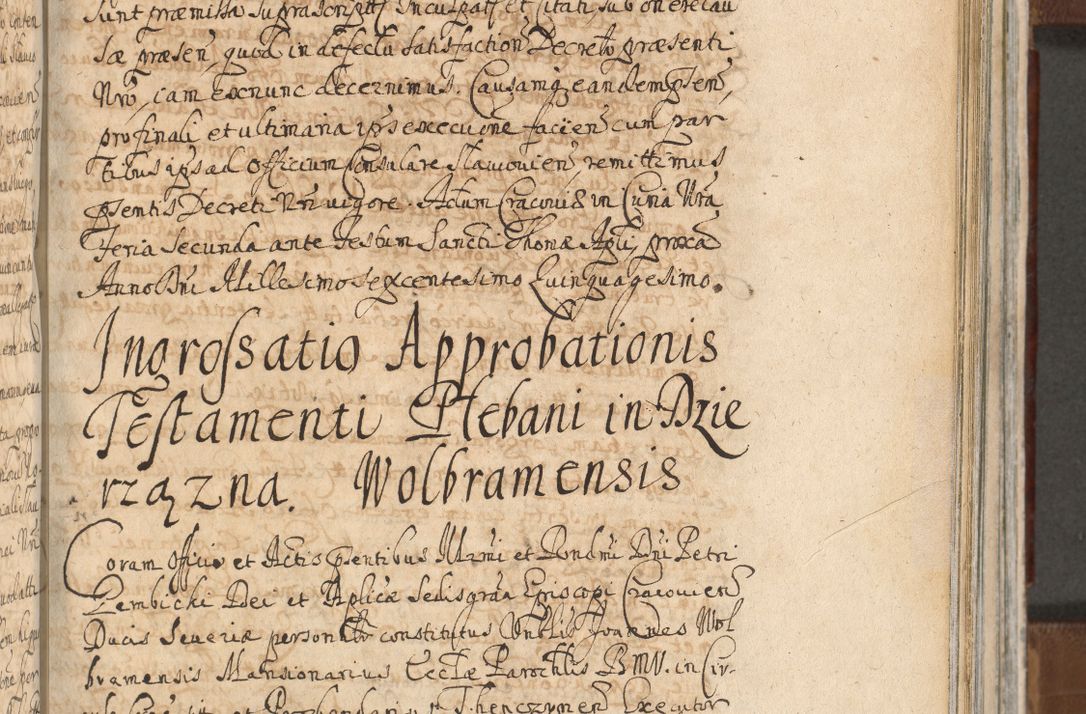 sunt præmissa suprascriptt Inculpatt et Citati, sub onere cau
sæ præsen, quod in defectu satisfaction Decreto præsenti
Nro, iam exnunc decernimus. Causamq; eandem psen,
pro finali et ultimaria ips executione facien cum par
tibus ips ad Officium Consulare Slawouien, remittimus
psentis Decreti Nri vigore. Actum Cracouiæ in Curia Nra
Feria Secunda ante Festum Sancti Thomæ Apli, proxa
Anno Dni Millesimo Sexcentesimo Quinquagesimo.
Ingrossatio Approbationis
Testamenti Plebani in Dzie
rzązna. Wolbramensis
Coram Officio et Actis psentibus Illrmi et Rondmi Dni Petri
Gembicki Dei et Aplicæ Sedis gra Episcopi Cracouien
Ducis Seueriæ personlr constitutus Vntlis Joannes Wol
bramensis Mansionarius Ecctæ Parochlis BMV. in Cir-
Thenczynen Executor